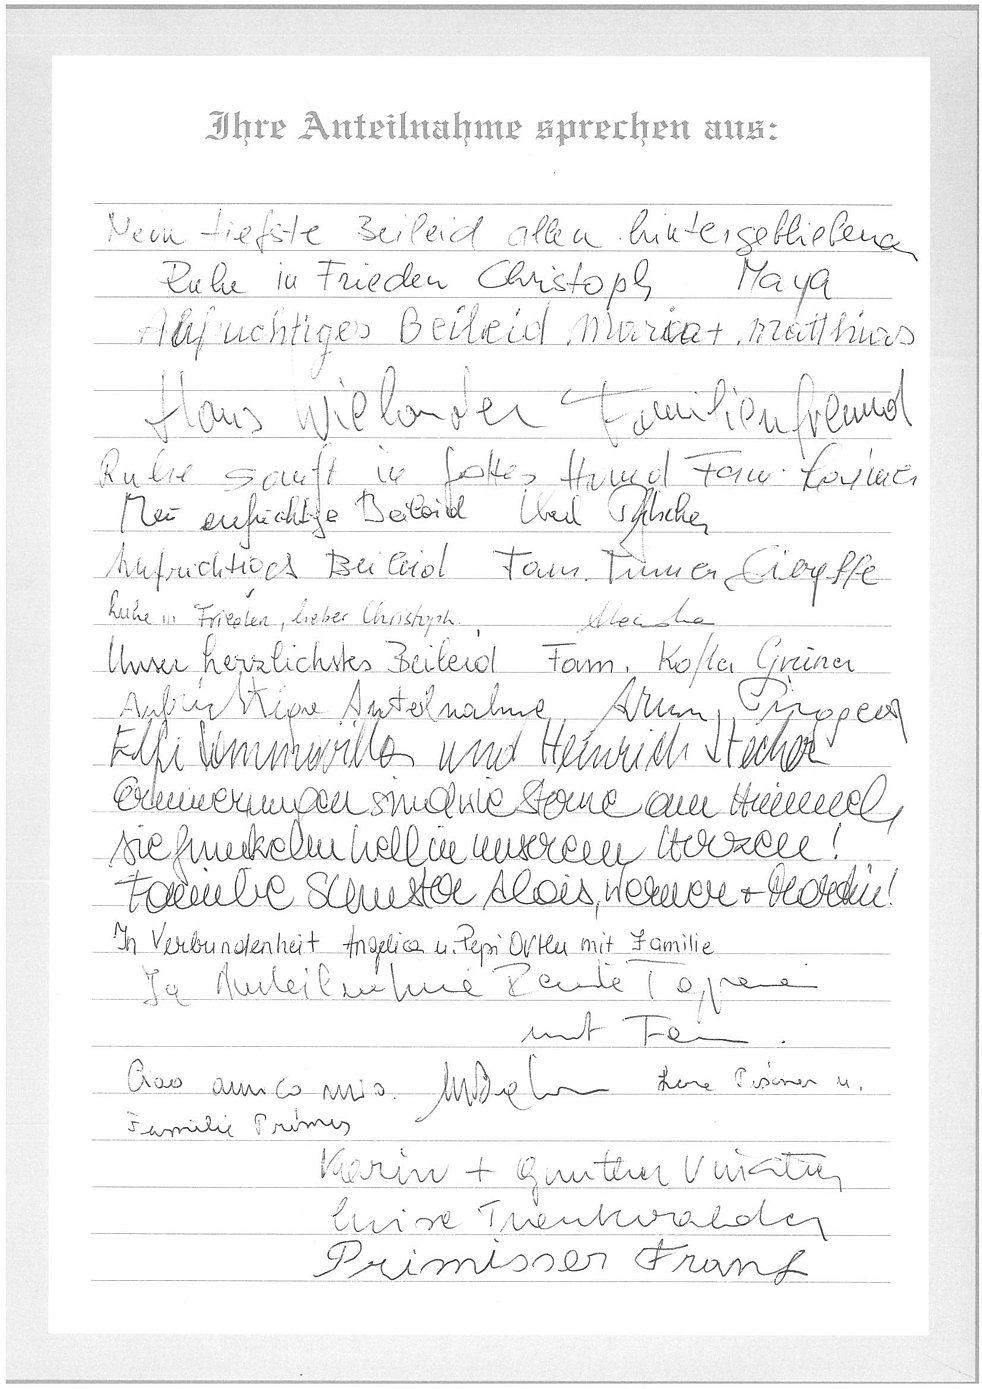 Ihre Anteilnahme sprechen aus:
Mein tiefste Beileid allen hintergebliebenen
Ruhe in Frieden Christoph Maya
Aufrichtiges Beileid Maria + Matthias
Hans Wielander Familienfreund
Ruhe sanft in Gottes Hand Fam.
Mein aufrichtige Beileid
Aufrichtiges Beileid Fam.
Ruhe in Frieden, lieber Christoph.
Unser herzlichstes Beileid Fam. Kofler Grüner
Aufrichtige Anteilnahme Pinggera
Elfi Sommavilla und Heinrich Stecher
Erinnerungen sind wie Sterne am Himmel,
sie funkeln hell in unseren Herzen!
Familie Schuster Alois, Werner + Martin!
In Verbundenheit Angelica u. Pepi Ortler mit Familie
In Anteilnahme
mit Fam.
Ciao amico mio. u.
Familie Primus
Karin + Gunther
Luise Trenkwalder
Primisser Franz